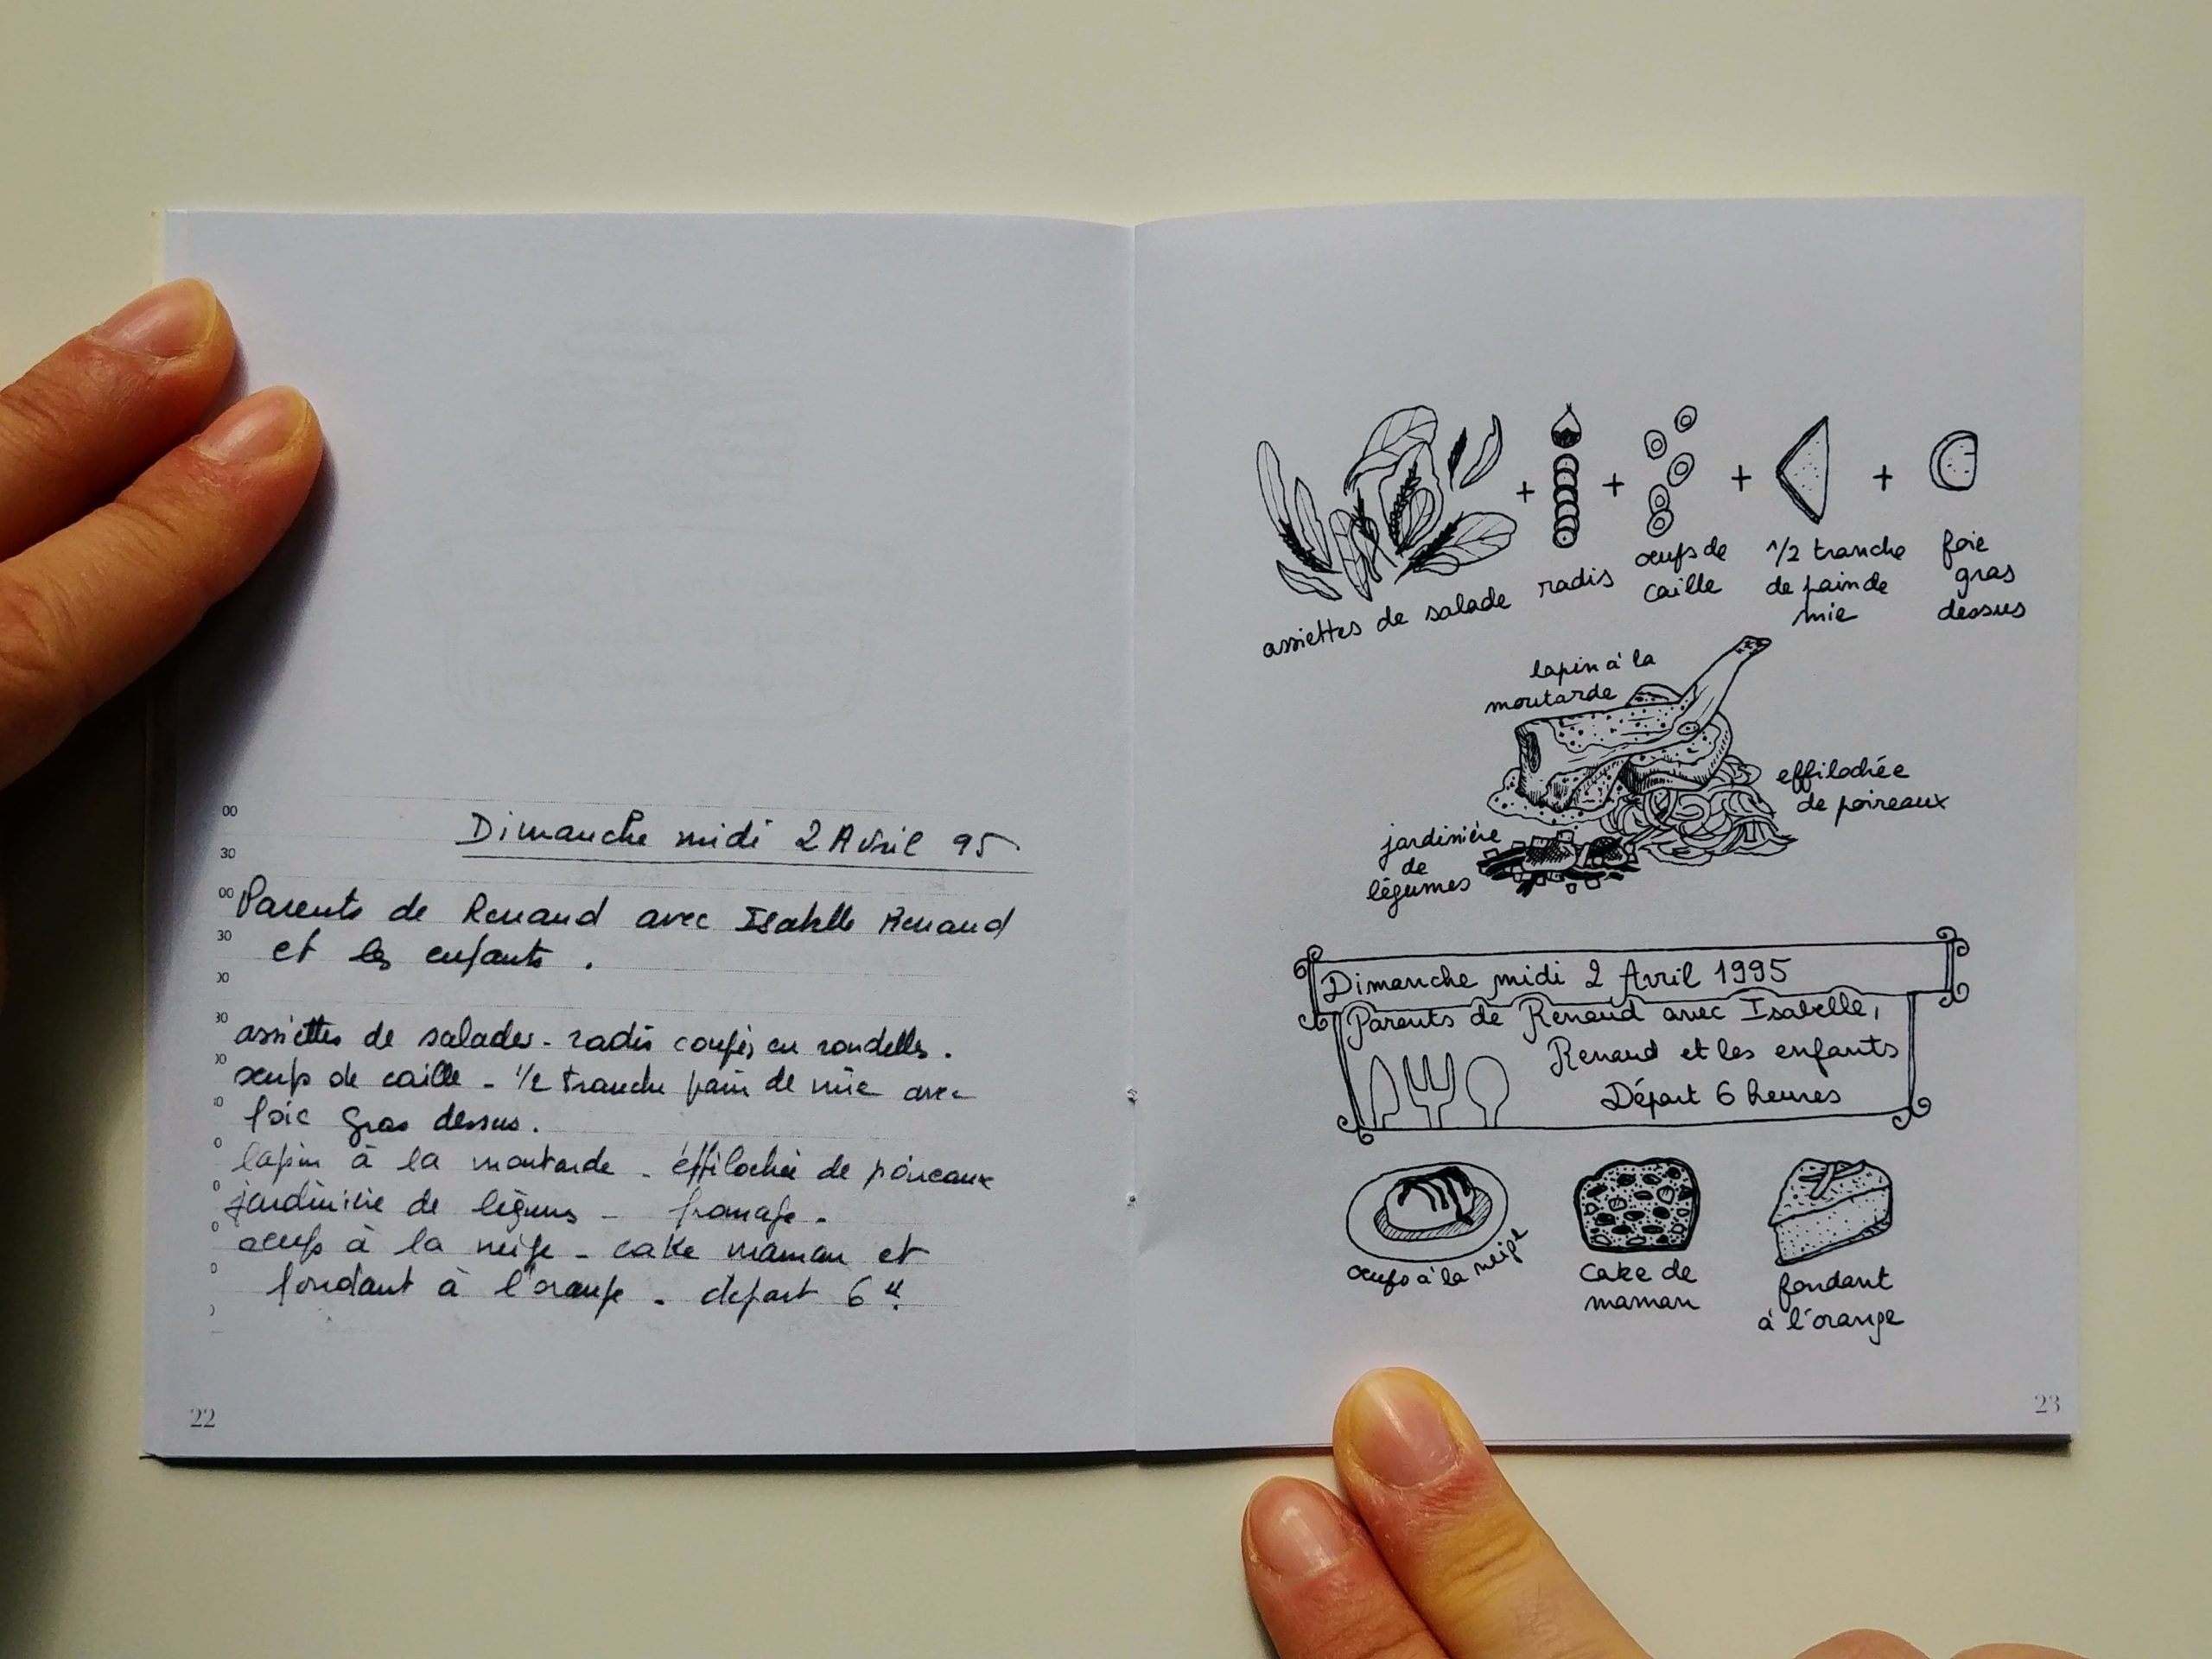 00
30
00
30
00
30
Dimanche midi 2 Avril 95
Parents de Renaud avec Isabelle Renaud
et les enfants.
assiettes de salades - radis coupés en rondelles.
oeufs de caille - 1/2 tranche pain de mie avec
foie gras dessus.
lapin à la moutarde - éffilochée de poireaux
jardinière de légumes - fromage.
oeufs à la neige - cake maman et
fondant à l'orange - depart 6 H.
22
+ + + +
assiettes de salade
radis
oeufs de
caille
1/2 tranche
de pain de
mie
foie
gras
dessus
lapin à la
moutarde
effilochée
de poireaux
jardinière
de
légumes
Dimanche midi 2 Avril 1995
Parents de Renaud avec Isabelle,
Renaud et les enfants
Départ 6 heures
oeufs à la neige
cake de
maman
fondant
à l'orange
23